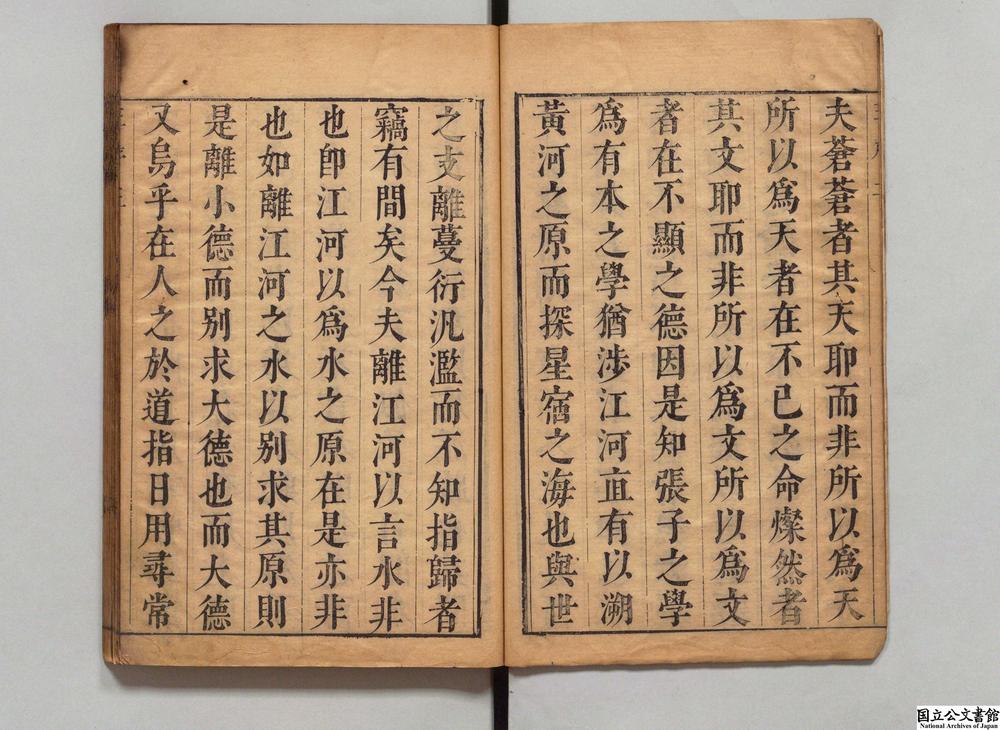 夫蒼蒼者其天耶而非所以爲天
所以爲天者在不已之命燦然者
其文耶而非所以爲文所以爲文
者在不顯之德因是知張子之學
爲有本之學猶涉江河直有以溯
黃河之原而探星宿之海也與世
之支離蔓衍汎濫而不知指歸者
竊有間矣今夫離江河以言水非
也卽江河以爲水之原在是亦非
也如離江河之水以别求其原則
是離小德而别求大德也而大德
又烏乎在人之於道指日用尋常
国立公文書館
National Archives of Japan